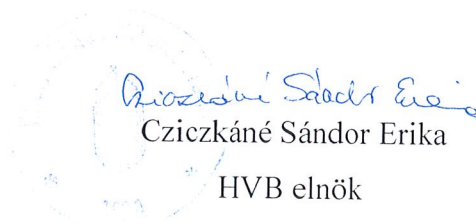 Cziczkáné Sándor Erika
Cziczkáné Sándor Erika
HVB elnök